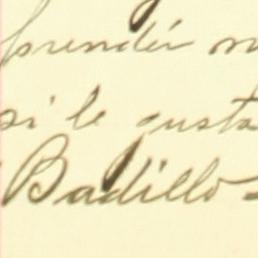 prender
si le gusta
Badillo